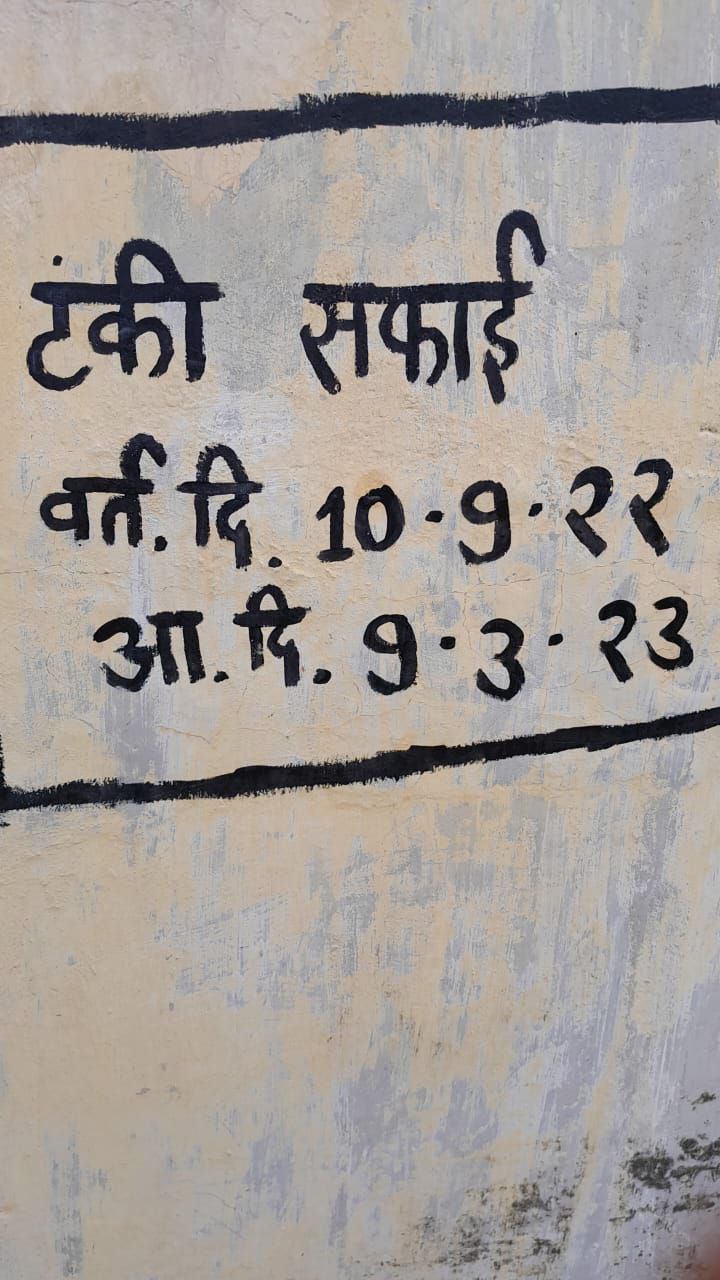 टंकी सफाई
वर्त. दि. 10.9.२२
आ. दि. 9.3.२३